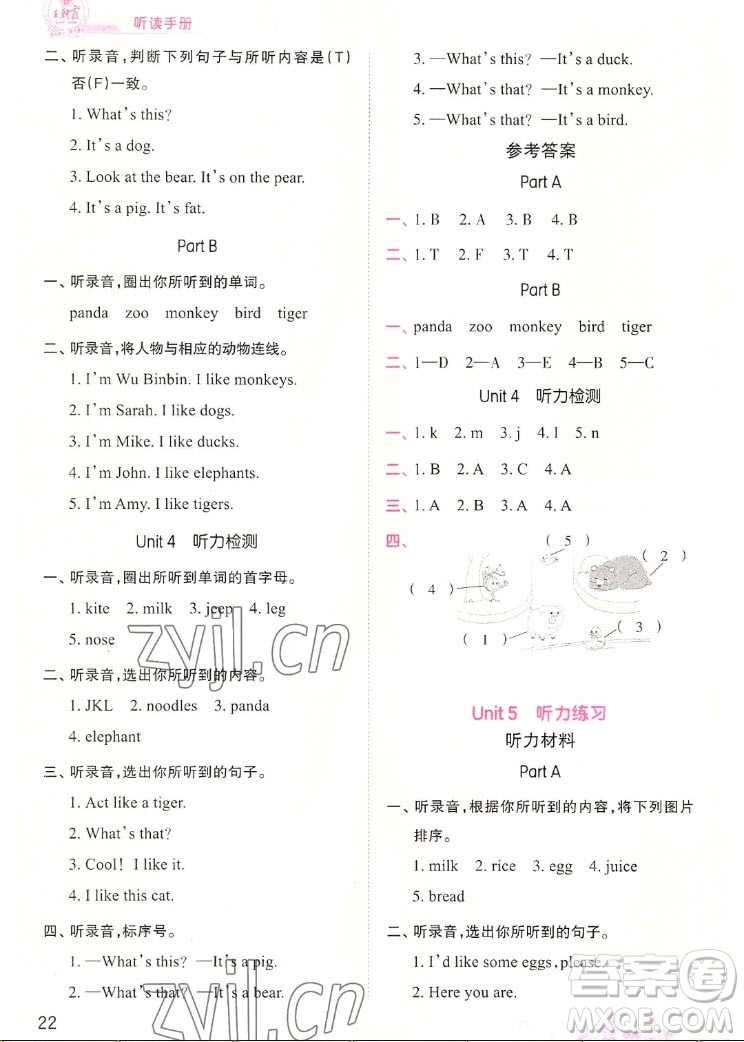 王朝霞
听读手册
二、听录音,判断下列句子与所听内容是(T)
否(F)一致。
1. What's this?
2. It's a dog.
3. Look at the bear. It's on the pear.
4. It's a pig. It's fat.
Part B
一、听录音,圈出你所听到的单词。
panda zoo monkey bird tiger
二、听录音,将人物与相应的动物连线。
1. I'm Wu Binbin. I like monkeys.
2. I'm Sarah. I like dogs.
3. I'm Mike. I like ducks.
4. I'm John. I like elephants.
5. I'm Amy. I like tigers.
Unit 4 听力检测
一、听录音,圈出所听到单词的首字母。
1. kite 2. milk 3. jeep 4. leg
5. nose
二、听录音,选出你所听到的内容。
1. JKL 2. noodles 3. panda
4. elephant
三、听录音,选出你所听到的句子。
1. Act like a tiger.
2. What's that?
3. Cool! I like it.
4. I like this cat.
四、听录音,标序号。
1. —What's this? —It's a pig.
2. —What's that? —It's a bear.
22
3. —What's this? —It's a duck.
4. —What's that? —It's a monkey.
5. —What's that? —It's a bird.
参考答案
Part A
一、1. B 2. A 3. B 4. B
二、1. T 2. F 3. F 4. T
Part B
一、panda zoo monkey bird tiger
二、1—D 2—A 3—E 4—B 5—C
Unit 4 听力检测
一、1. k 2. m 3. j 4. l 5. n
二、1. B 2. A 3. A 4. A
三、1. A 2. B 3. B 4. A
四、
( 5 )
( 2 )
( 4 )
( 1 )
( 3 )
Unit 5 听力练习
听力材料
Part A
一、听录音,根据你所听到的内容,将下列图片
排序。
1. milk 2. rice 3. egg 4. juice
5. bread
二、听录音,选出你所听到的句子。
1. I'd like some eggs, please.
2. Here you are.
zyjl.cn
zyjl.cn
答案圈